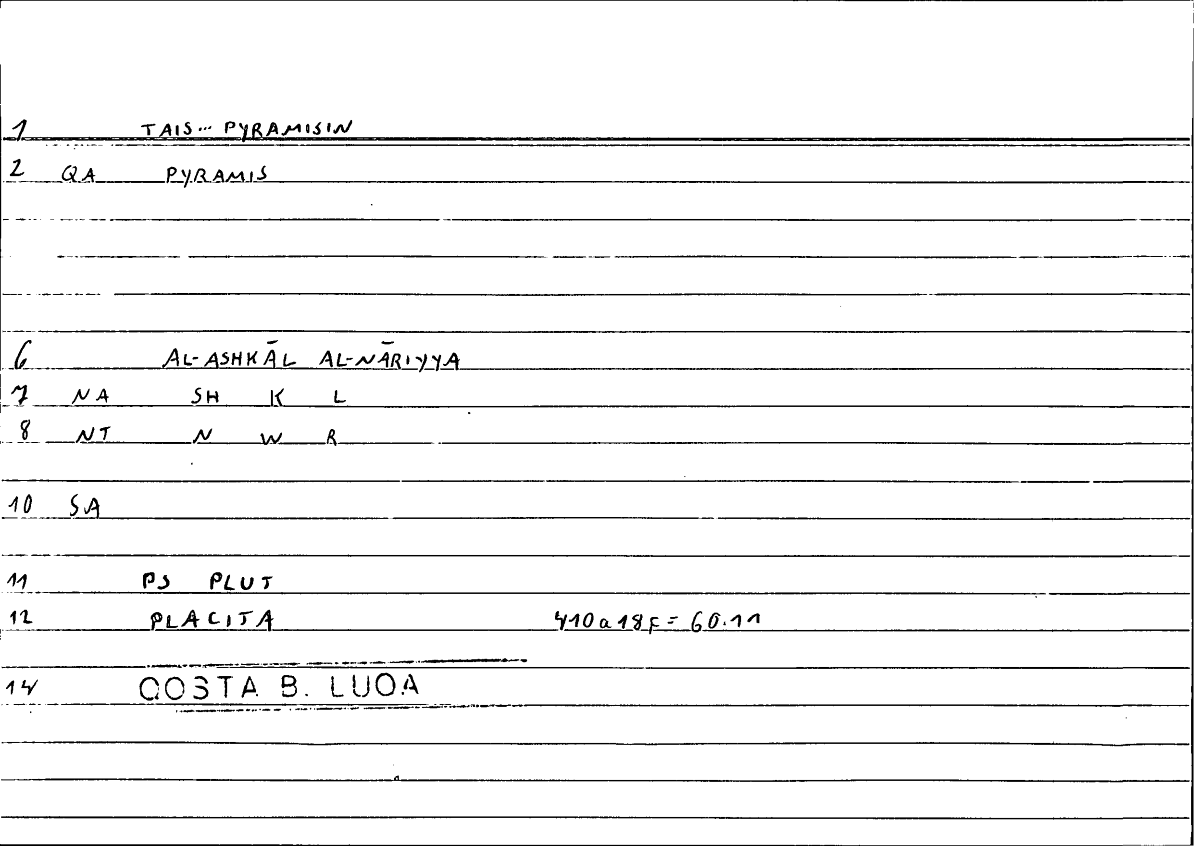 1 TAIS... PYRAMISIN
2 QA PYRAMIS
6 AL-ASHKĀL AL-NĀRIYYA
7 NA SH K L
8 NT N W R
10 SA
11 PS PLUT
12 PLACITA 410a18F = 60.11
14 QOSTA B. LUQA